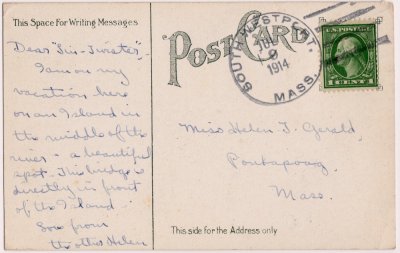 This Space For Writing Messages
POST CARD
SOUTH WESTPORT
JUL
9
1914
MASS.
U.S. POSTAGE
1 CENT 1
Dear
I am on my
vacation here
on an Island in
the middle of the
river - a beautiful
spot. This bridge is
directly in front
of the Island.
from
the other Helen
Miss Helen T. Gerald,
Mass.
This side for the Address only